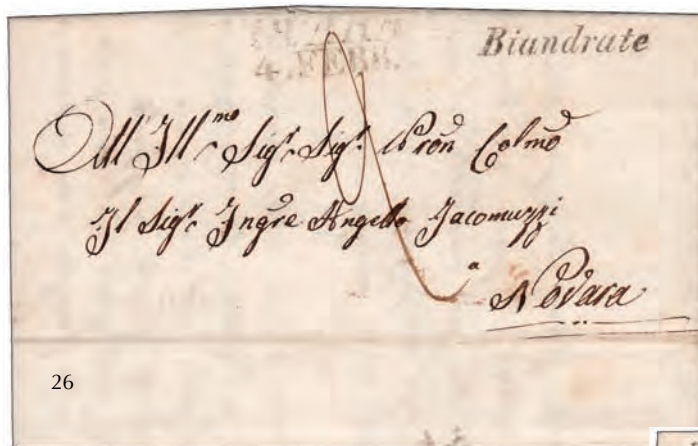 Biandrate
4. FEBB.
All'Ill.mo Sig.r Sig.r Pron Colmo
Il Sig.r Ingre Angello Jacomuzzi
a
Novara
26